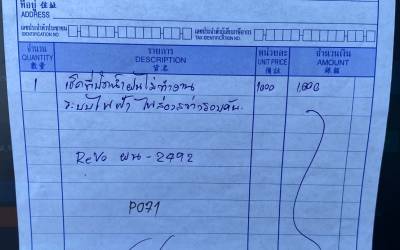 ที่อยู่ 住址
ADDRESS
เลขประจำตัวประชาชน
IDENTIFICATION NO.
เลขประจำตัวผู้เสียภาษีอากร
TAX IDENTIFICATION NO.
จำนวน รายการ หน่วยละ จำนวนเงิน
QUANTITY DESCRIPTION UNIT PRICE AMOUNT
數量 貨名 價銀
1 เช็คที่ปัดน้ำฝนไม่ทำงาน 1000 1,000
ระบบไฟฟ้า ไฟส่องสว่างรอบคัน.
ReVo ผน-2492
P071